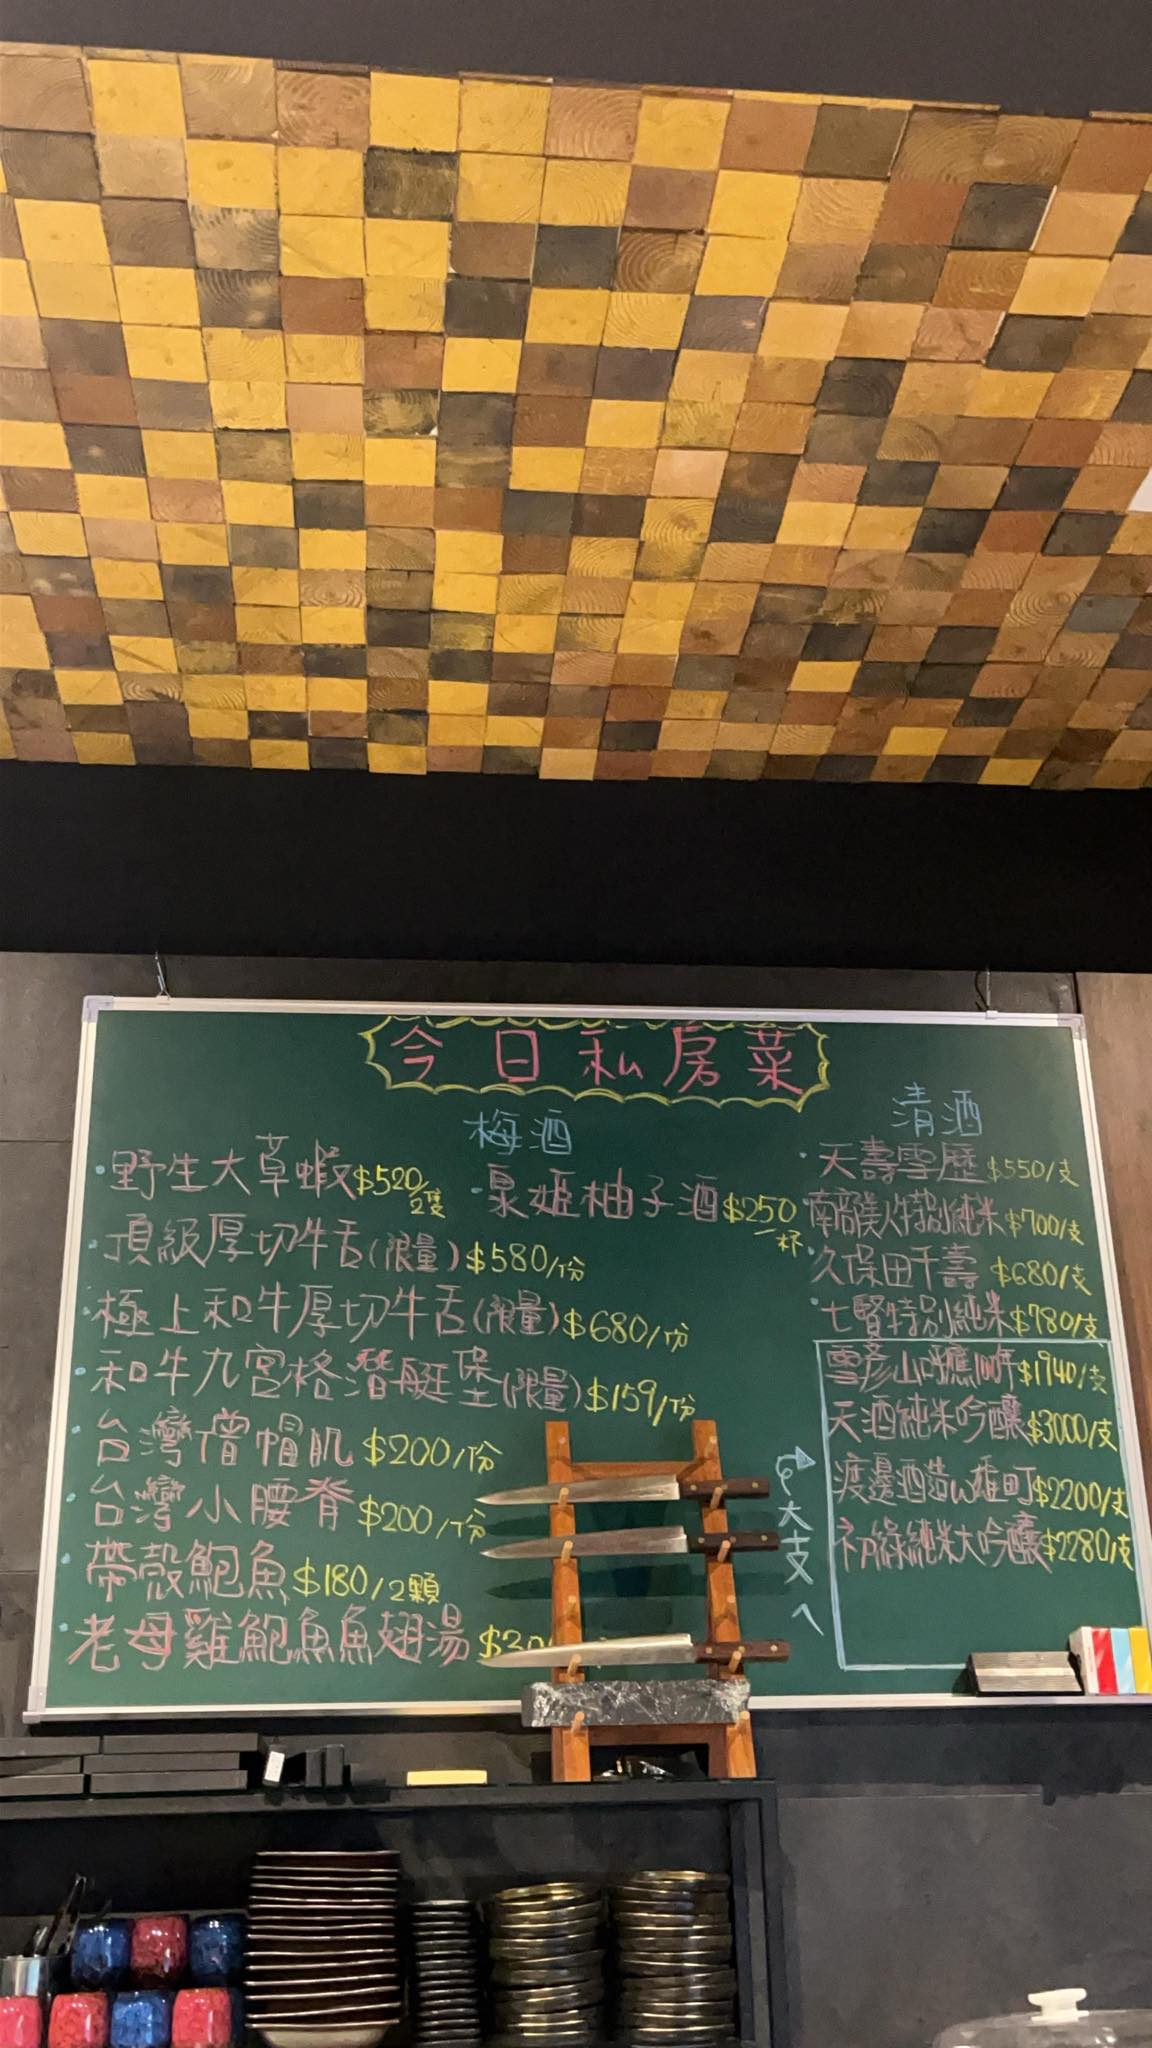 今日私房菜
梅酒
清酒
野生大草蝦$520/2隻
頂級厚切牛舌(限量)$580/份
極上和牛厚切牛舌(限量)$680/份
和牛九宮格潛艇堡(限量)$159/份
台灣僧帽肌 $200/份
台灣小腰脊 $200/份
帶殼鮑魚$180/2顆
老母雞鮑魚魚翅湯
泉姫柚子酒$250/杯
天壽雪歷$550/支
南部美人特別純米$700/支
久保田千壽 $680/支
七賢特別純米$780/支
雪彥山 100年$1940/支
天酒純米吟釀$3000/支
渡邊酒造 $2200/支
初綠純米大吟釀$2280/支
大支